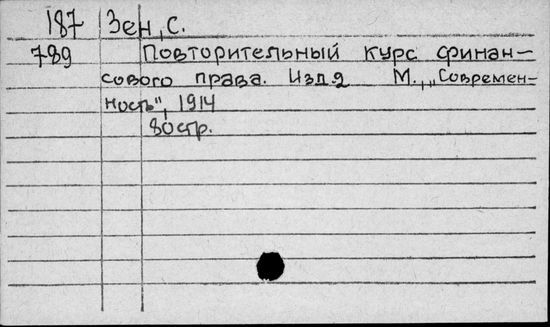 187 Зен, С.
789 Повторительный курс финан-
сового права. Изд 2 М., „Современ-
ность", 1914
80 стр.